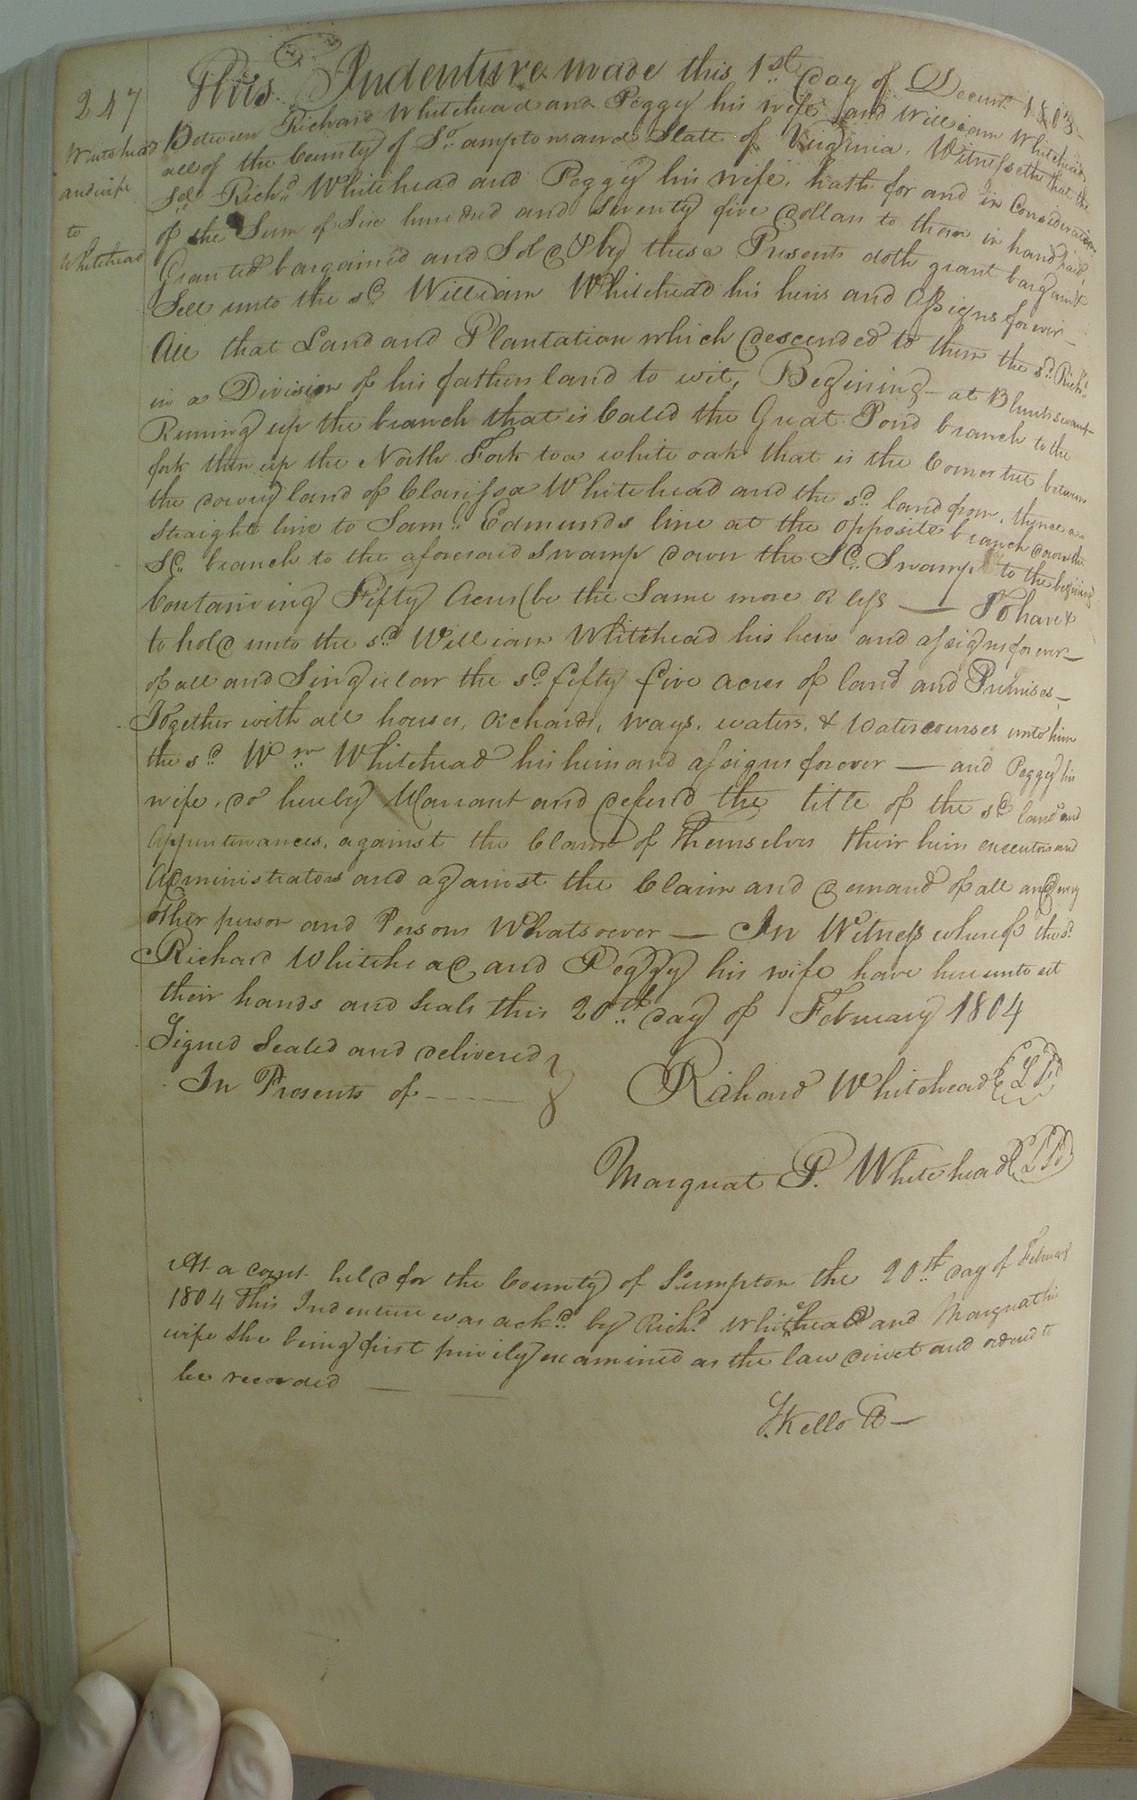 247
Whitehead
and wife
to
Whitehead
This Indenture made this 1st. day of Decemr. 1803
Between Richard Whitehead and Peggy his wife and William Whitehead
all of the County of So. ampton and State of Virginia. Witnesseth that the
sd. Richd. Whitehead and Peggy his wife, hath for and in Consideration
of the Sum of Six hundred and seventy five dollars to them in hand paid,
Granted bargained and Sold & by these Presents doth grant bargain &
Sell unto the sd. William Whitehead his heirs and Assigns forever
All that Land and Plantation which descended to them the sd. Richd.
in a Division of his fathers land to wit, Begining at Blunts swamp
Runing up the branch that is Caled the Great Pond branch to the
fork then up the North Fork to a white oak that is the Corner tree between
the dowry land of Clarissa Whitehead and the sd. land from, thence a
straight line to Saml. Edmunds line at the opposite branch down the
Sd. branch to the aforesaid Swamp down the Sd. Swamp to the begining
Containing Fifty Acres (be the Same more or less — To have &
to hold unto the sd. William Whitehead his heirs and assigns forever
of all and Singular the sd. fifty five acres of land and Premises
Together with all houses, orchards, ways, waters, & Watercourses unto him
the sd. Wm. Whitehead his heirs and assigns forever — and Peggy his
wife, do hereby Warrant and defend the title of the sd. land and
Appurtenances, against the Claim of Themselves their heirs executors and
Administrators and against the Claim and demand of all and every
other person and Persons Whatsoever — In Witness whereof the sd.
Richard Whitehead and Peggy his wife have hereunto set
their hands and seals this 20th. day of February 1804
Signed Sealed and delivered
In Presents of
Richard Whitehead LS
Margreat P. Whitehead LS
At a court held for the County of Sumpton the 20th. day of Februay
1804 This Indenture was ackd. by Richd. Whitehead and Margreat his
wife she being first privily examined as the law direct and ordered to
be recorded
S. Kello